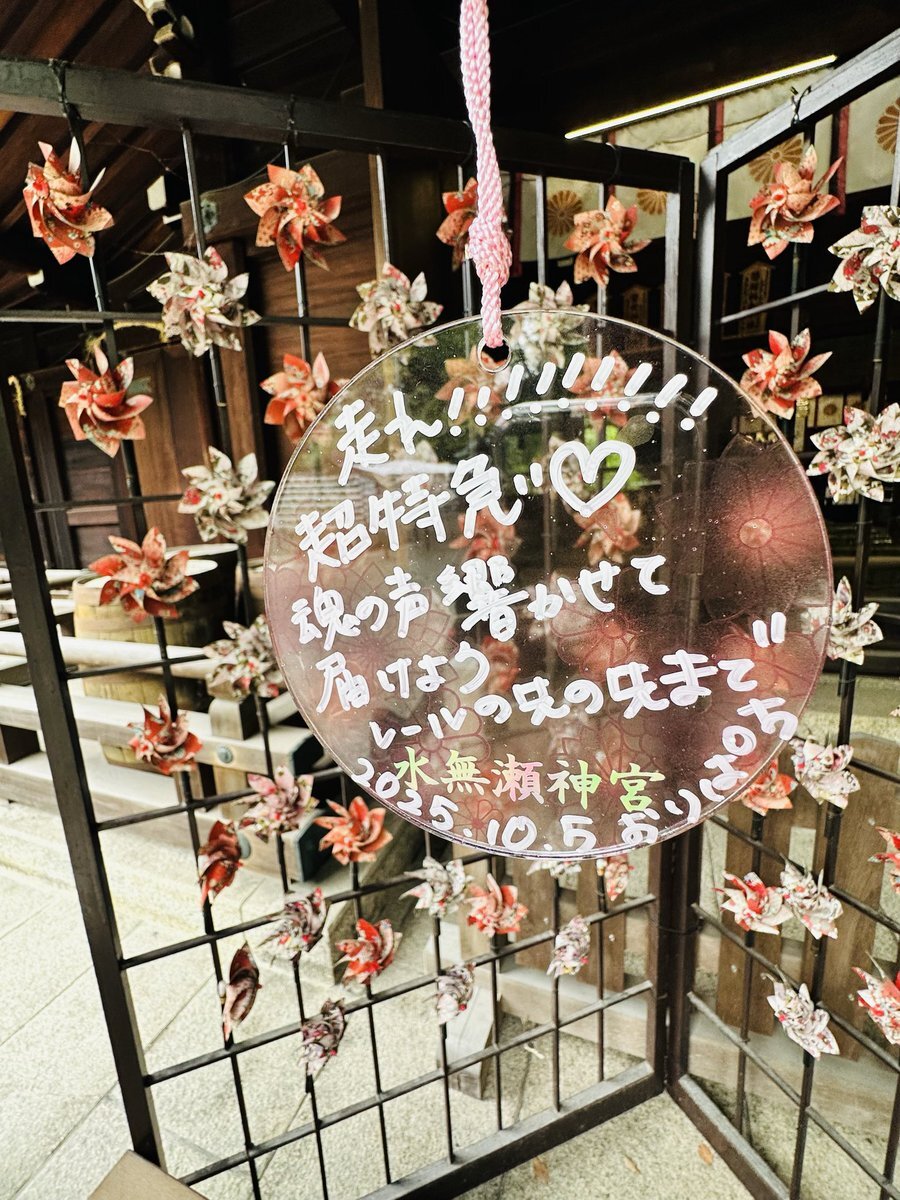 走れ!!!!!!!!!
超特急"♡
魂の声響かせて
届けよう
レールの先の先まで"
水無瀬神宮
2025.10.5 おりぱち